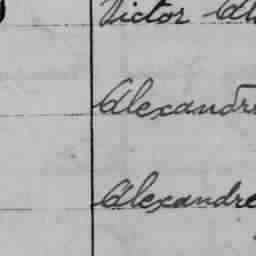 Victor
Alexandre
Alexandre